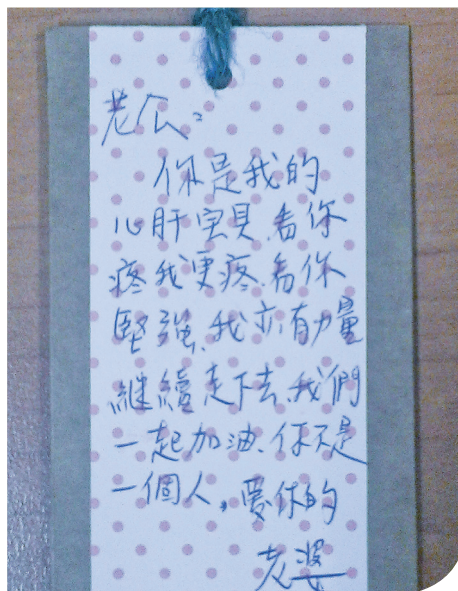 老公:
你是我的
心肝宝貝.看你
疼我更疼.看你
堅強.我亦有力量
繼續走下去.我們
一起加油.你不是
一個人,愛你的
老婆